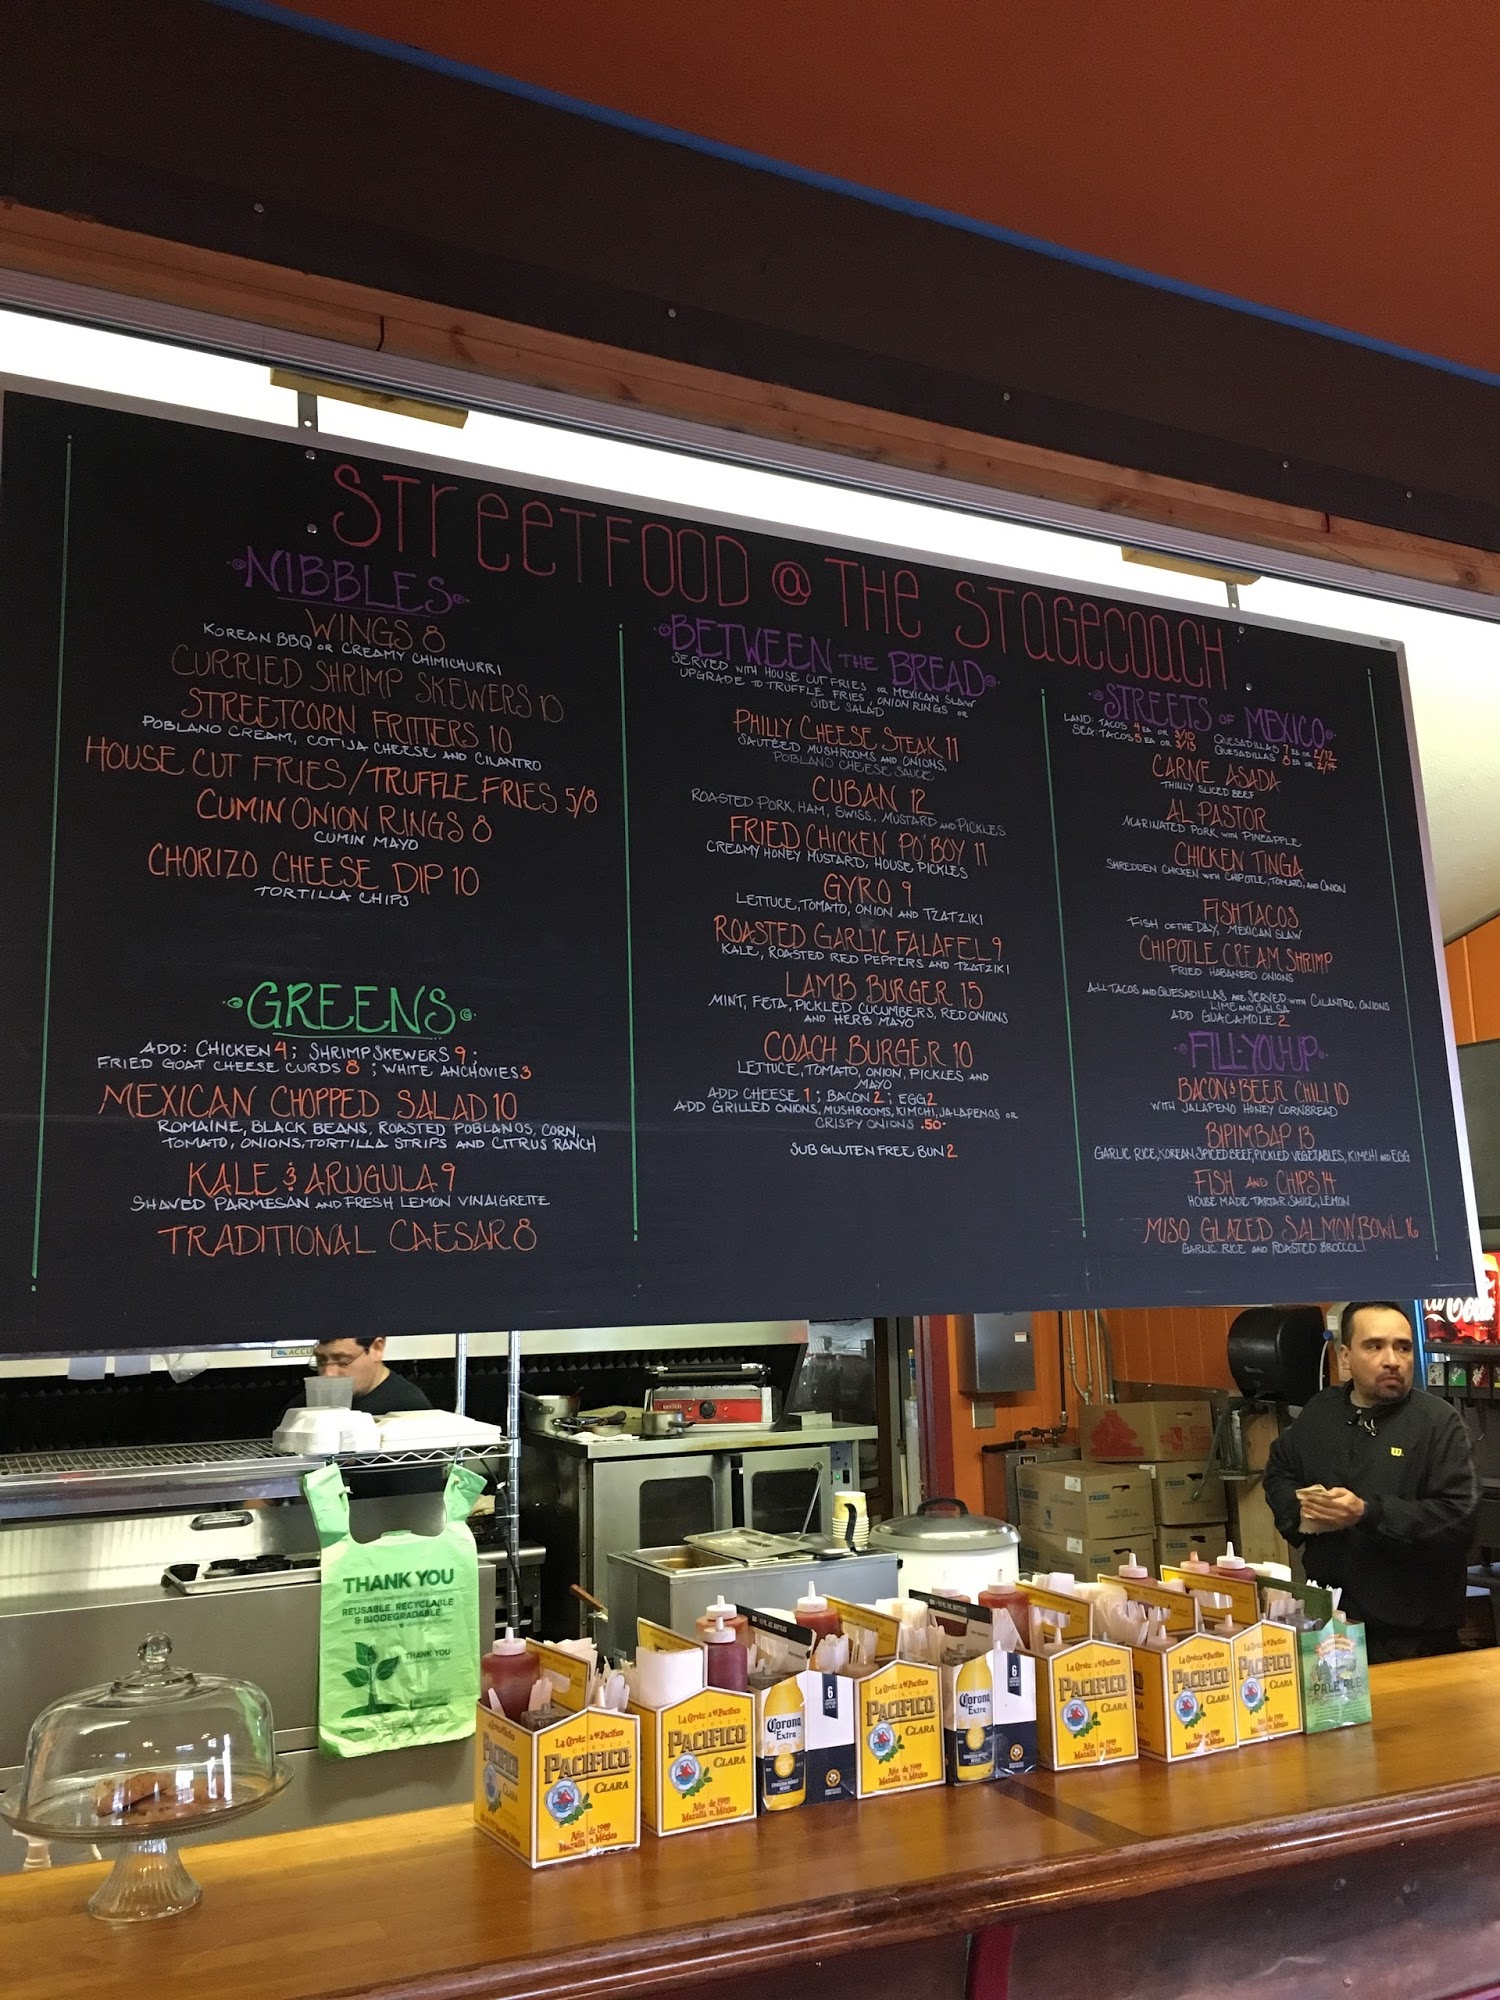 STREETFOOD @ THE STAGECOACH
NIBBLES
WINGS 8
KOREAN BBQ OR CREAMY CHIMICHURRI
CURRIED SHRIMP SKEWERS 10
STREETCORN FRITTERS 10
POBLANO CREAM, COTIJA CHEESE AND CILANTRO
HOUSE CUT FRIES/TRUFFLE FRIES 5/8
CUMIN ONION RINGS 8
CUMIN MAYO
CHORIZO CHEESE DIP 10
TORTILLA CHIPS
GREENS
ADD: CHICKEN 4; SHRIMP SKEWERS 9;
FRIED GOAT CHEESE CURDS 8; WHITE ANCHOVIES 3
MEXICAN CHOPPED SALAD 10
ROMAINE, BLACK BEANS, ROASTED POBLANOS, CORN,
TOMATO, ONIONS, TORTILLA STRIPS AND CITRUS RANCH
KALE & ARUGULA 9
SHAVED PARMESAN AND FRESH LEMON VINAIGRETTE
TRADITIONAL CAESAR 8
BETWEEN THE BREAD
SERVED WITH HOUSE CUT FRIES OR MEXICAN SLAW
UPGRADE TO TRUFFLE FRIES, ONION RINGS OR
SIDE SALAD
PHILLY CHEESE STEAK 11
SAUTÉED MUSHROOMS AND ONIONS,
POBLANO CHEESE SAUCE
CUBAN 12
ROASTED PORK, HAM, SWISS, MUSTARD AND PICKLES
FRIED CHICKEN PO'BOY 11
CREAMY HONEY MUSTARD, HOUSE PICKLES
GYRO 9
LETTUCE, TOMATO, ONION AND TZATZIKI
ROASTED GARLIC FALAFEL 9
KALE, ROASTED RED PEPPERS AND TZATZIKI
LAMB BURGER 15
MINT, FETA, PICKLED CUCUMBERS, RED ONIONS
AND HERB MAYO
COACH BURGER 10
LETTUCE, TOMATO, ONION, PICKLES AND
MAYO
ADD CHEESE 1; BACON 2; EGG 2
ADD GRILLED ONIONS, MUSHROOMS, KIMCHI, JALAPENOS OR
CRISPY ONIONS .50-
SUB GLUTEN FREE BUN 2
STREETS OF MEXICO
LAND: TACOS 4 EA OR 3/10 QUESADILLAS 7 EA OR 2/12
SEA: TACOS 5 EA OR 3/13 QUESADILLAS 8 EA OR 2/14
CARNE ASADA
THINLY SLICED BEEF
AL PASTOR
MARINATED PORK WITH PINEAPPLE
CHICKEN TINGA
SHREDDEN CHICKEN WITH CHIPOTLE, TOMATO, AND ONION
FISH TACOS
FISH OF THE DAY, MEXICAN SLAW
CHIPOTLE CREAM SHRIMP
FRIED HABANERO ONIONS
ALL TACOS AND QUESADILLAS ARE SERVED WITH CILANTRO, ONIONS
LIME AND SALSA
ADD GUACAMOLE 2
FILL-YOU-UP
BACON & BEER CHILI 10
WITH JALAPENO HONEY CORNBREAD
BIPIMBAP 13
GARLIC RICE, KOREAN SPICED BEEF, PICKLED VEGETABLES, KIMCHI AND EGG
FISH AND CHIPS 14
HOUSE MADE TARTAR SAUCE, LEMON
MISO GLAZED SALMON BOWL 16
GARLIC RICE AND ROASTED BROCCOLI
THANK YOU
REUSABLE, RECYCLABLE
& BIODEGRADABLE
THANK YOU
PACIFICO
CLARA
PACIFICO
CLARA
Corona
Extra
6
PACIFICO
CLARA
Corona
Extra
6
PACIFICO
CLARA
PACIFICO
CLARA
PACIFICO
CLARA
PALE ALE
W.